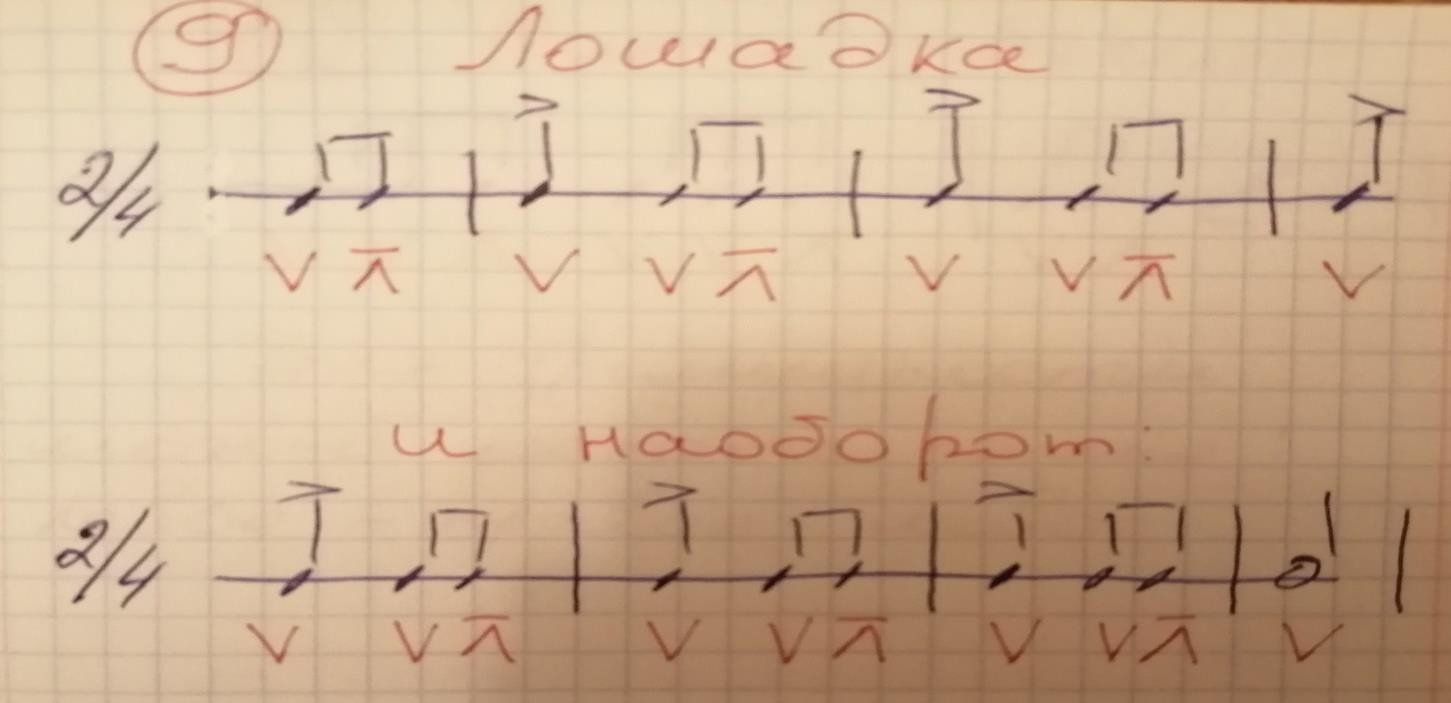 9 Лошадка
2/4
V Λ V V Λ V V Λ V
и наоборот:
2/4
V V Λ V V Λ V V Λ V